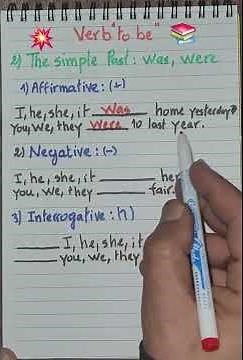 Verb "to be"
2) The simple Past: was, were
1) Affirmative: (+)
I, he, she, it was home yesterday.
You, we, they were 10 last year.
2) Negative: (-)
I, he, she, it ______ he
you, we, they ______ fair.
3) Interrogative:
______ I, he, she, it
______ you, we, they